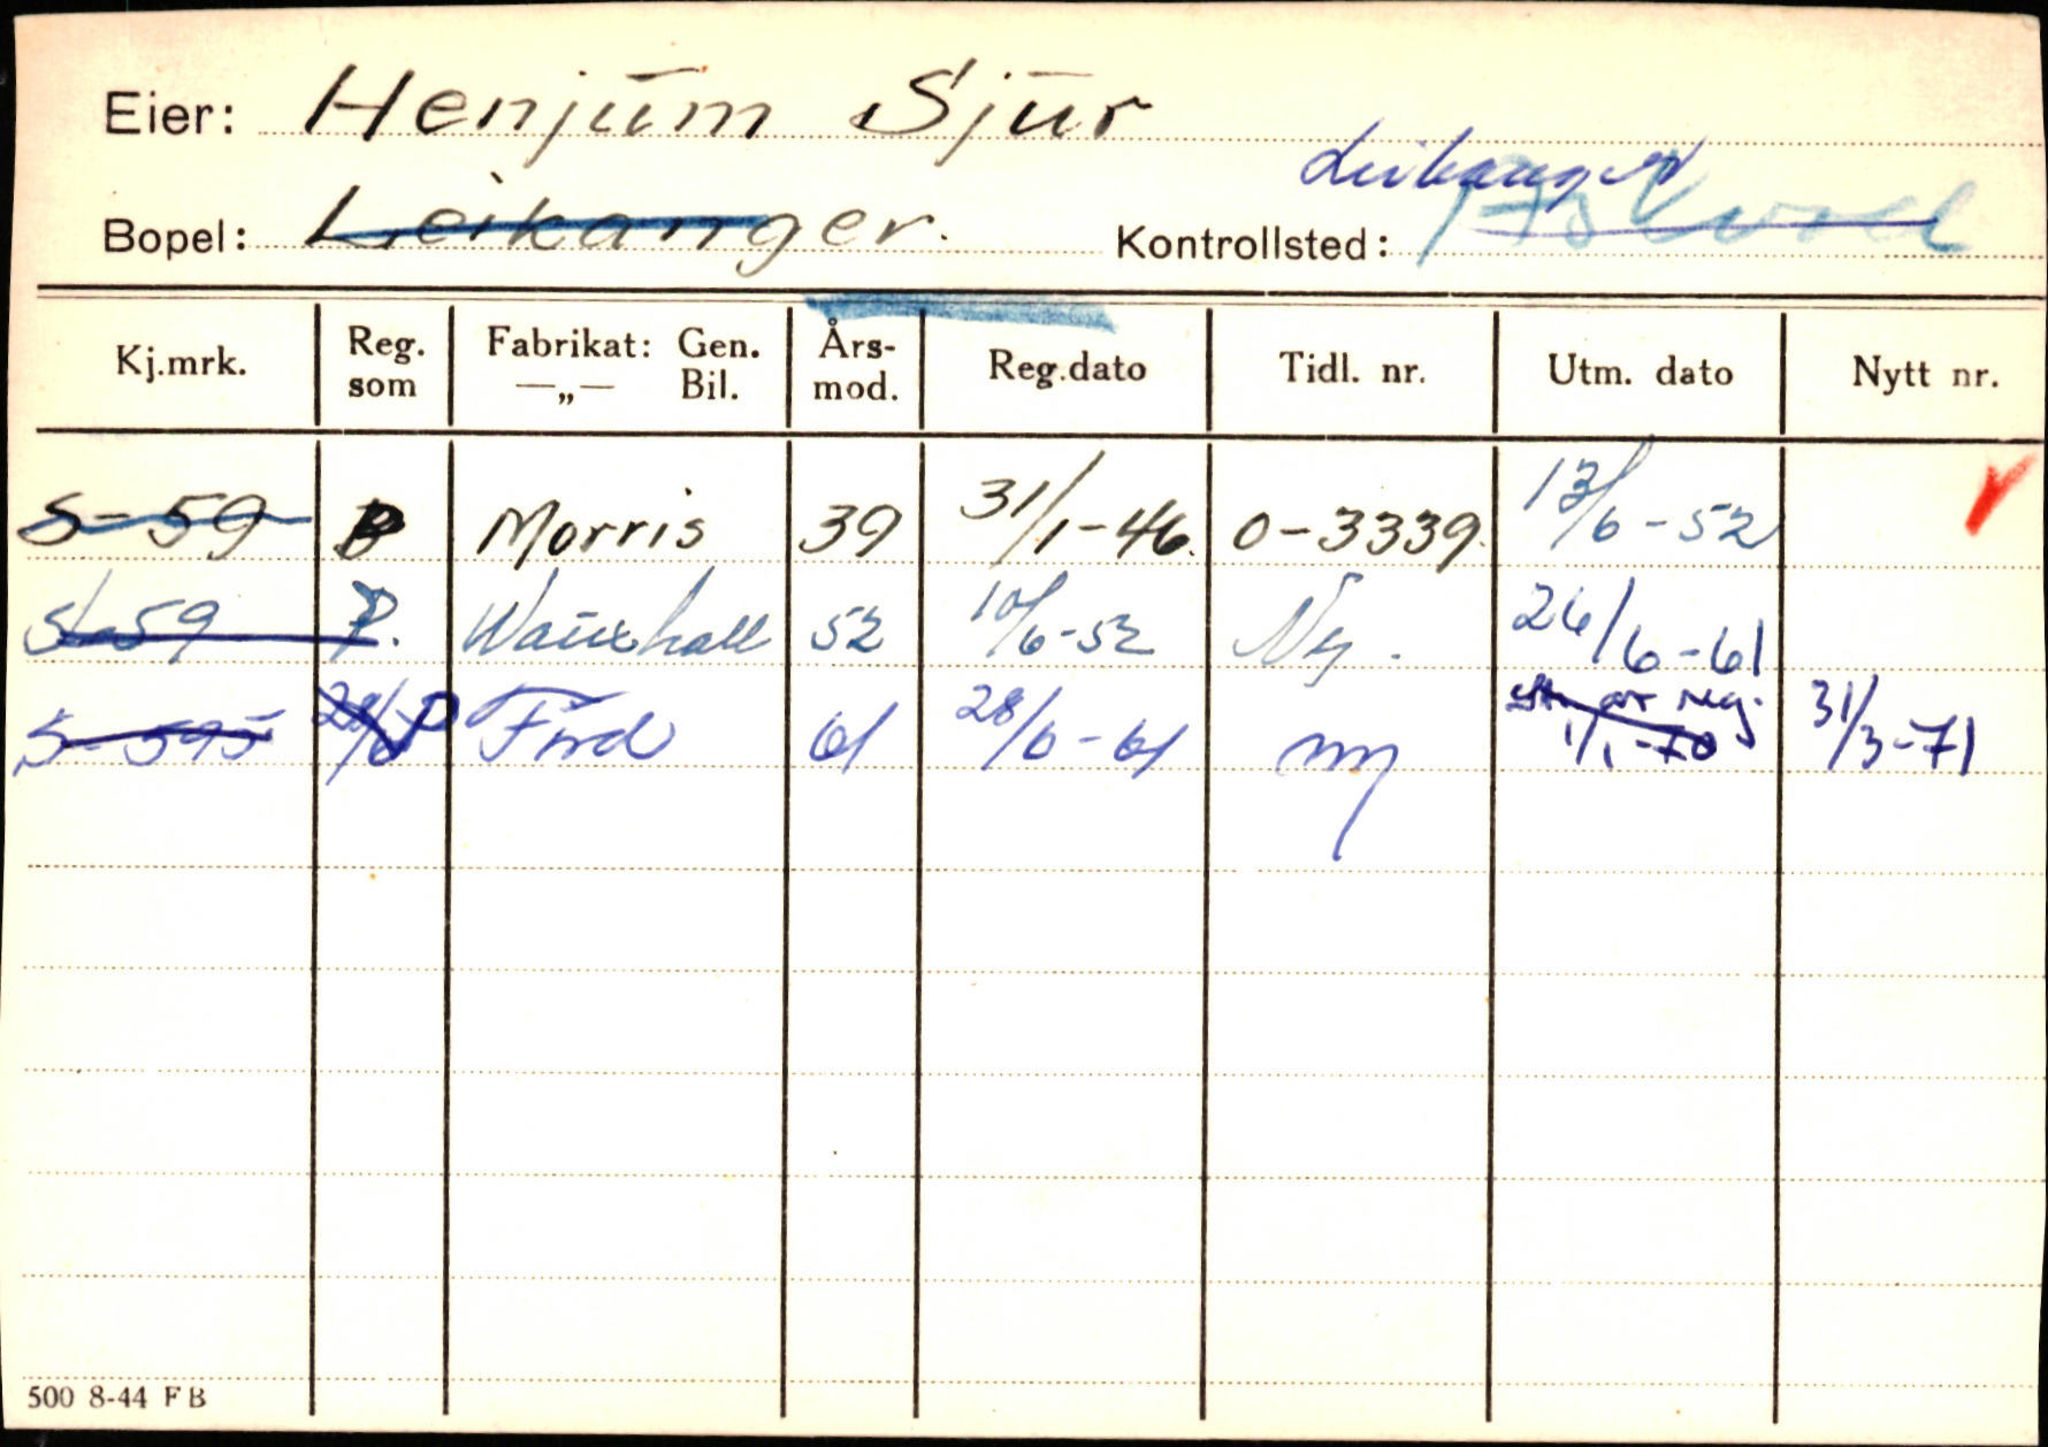 Eier: Henjum Sjur
Leikanger
Bopel: Leikanger. Kontrollsted:
Kj.mrk. Reg. som Fabrikat: Gen. —„— Bil. Års- mod. Reg.dato Tidl. nr. Utm. dato Nytt nr.
S-59 B Morris 39 31/1-46. O-3339. 13/6-52
S-59 P. Wauxhall 52 10/6-52 Ny. 26/6-61
S-595 28/6 P Ford 61 28/6-61 ny av reg. 1/1-70 31/3-71
500 8-44 FB